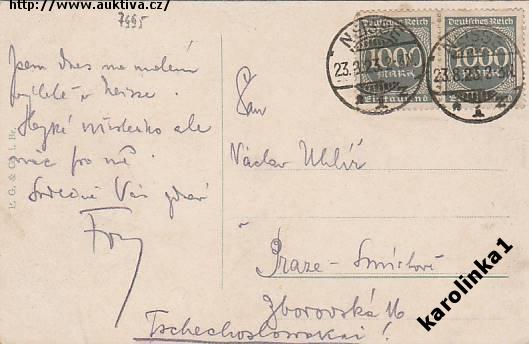 http://www.auktiva.cz/
7995
Jsem dnes na malém
výletě v Neisse.
Hezké městečko ale
nic pro mě.
Srdečně Vás zdraví
P. G. & Co. i. Br.
Deutsches Reich
1000
MARK
Deutsches Reich
1000
23.8.23
23.8.23
Pan
Václav Uhlíř
Praze - Smíchově
Zborovská 16
Tschechoslowakei!
karolinka1